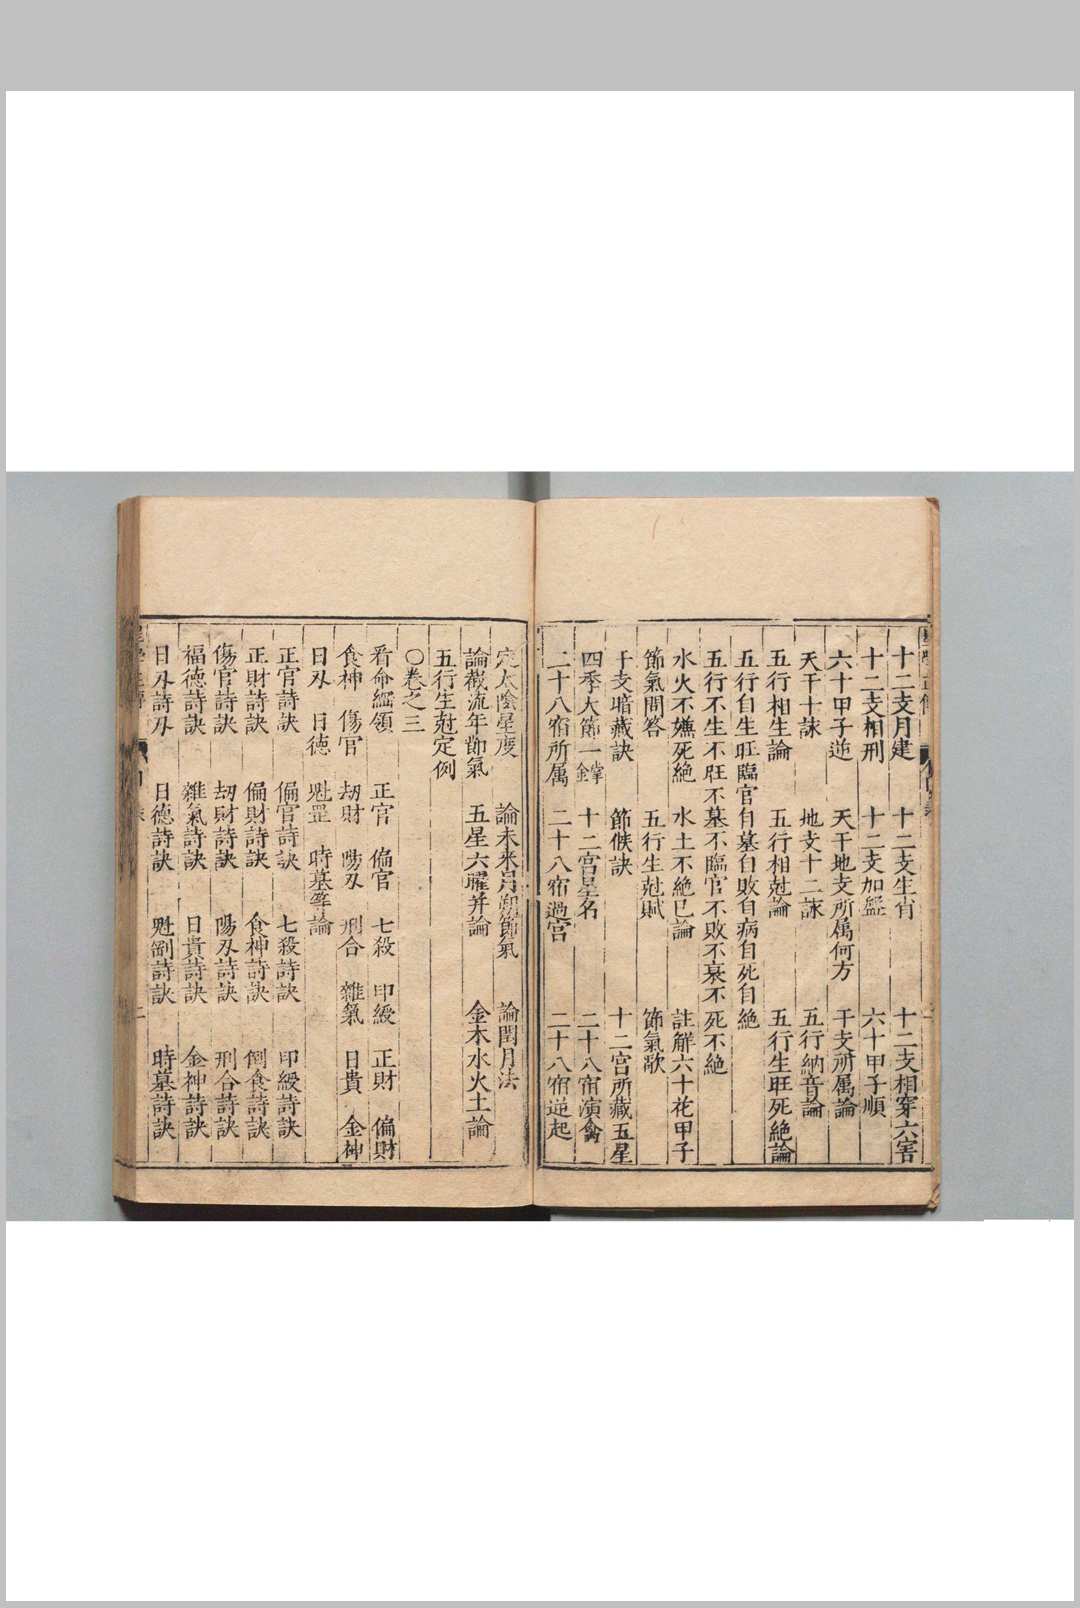 十二支月建　十二支生肖　十二支相穿六害
十二支相刑　十二支加盤　六十甲子順
六十甲子逆　天干地支所属何方　干支所属論
天干十詠　地支十二詠　五行納音論
五行相生論　五行相尅論　五行生旺死絶論
五行自生自旺臨官自墓自敗自病自死自絶
五行不生不旺不墓不臨官不敗不衰不死不絶
水火不嫌死絶　水土不絶巳論　註解六十花甲子
節氣問答　五行生尅賦　節氣歌
干支暗藏訣　節候訣　十二宮所藏五星
四季大節一掌　十二宮星名　二十八宿演禽
二十八宿所属　二十八宿過宮　二十八宿逆起
定太陰星度　論未來月朔節氣　論閏月法
論截流年節氣　五星六曜并論　金木水火土論
五行生尅定例
〇卷之三
看命綱領　正官　偏官　七殺　印綬　正財　偏財
食神　傷官　刼財　陽刄　刑合　雜氣　日貴　金神
日刄　日徳　魁罡　時墓等論
正官詩訣　偏官詩訣　七殺詩訣　印綬詩訣
正財詩訣　偏財詩訣　食神詩訣　倒食詩訣
傷官詩訣　刼財詩訣　陽刄詩訣　刑合詩訣
福徳詩訣　雜氣詩訣　日貴詩訣　金神詩訣
日刄詩刄　日徳詩訣　魁罡詩訣　時墓詩訣